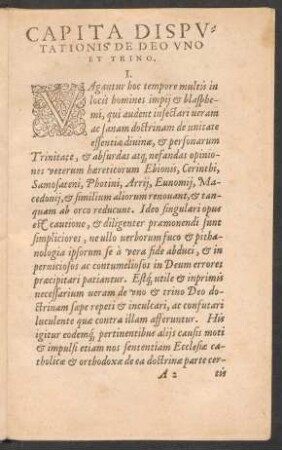 CAPITA DISPV-
TATIONIS DE DEO VNO
ET TRINO.
I.
VAgantur hoc tempore multis in
locis homines impij & blasphe-
mi, qui audent insectari ueram
ac sanam doctrinam de unitate
essentiæ diuinæ, & personarum
Trinitate, & absurdas atq; nefandas opinio-
nes ueterum hæreticorum Ebionis, Cerinthi,
Samosateni, Photini, Arrij, Eunomij, Ma-
cedonij, & similium aliorum renouant, & tan-
quam ab orco reducunt. Ideo singulari opus
est cautione, & diligenter præmonendi sunt
simpliciores, ne ullo uerborum fuco & pitha-
nologia ipsorum se à vera fide abduci, & in
perniciosos ac contumeliosos in Deum errores
præcipitari patiantur. Estq; utile & inprimis
necessarium ueram de uno & trino Deo do-
ctrinam sæpe repeti & inculcari, ac confutari
luculente quæ contra illam afferuntur. His
igitur eodemq; pertinentibus alijs causis moti
& impulsi etiam nos sententiam Ecclesiæ ca-
tholicæ & orthodoxæ de ea doctrinæ parte cer-
A 2 tis